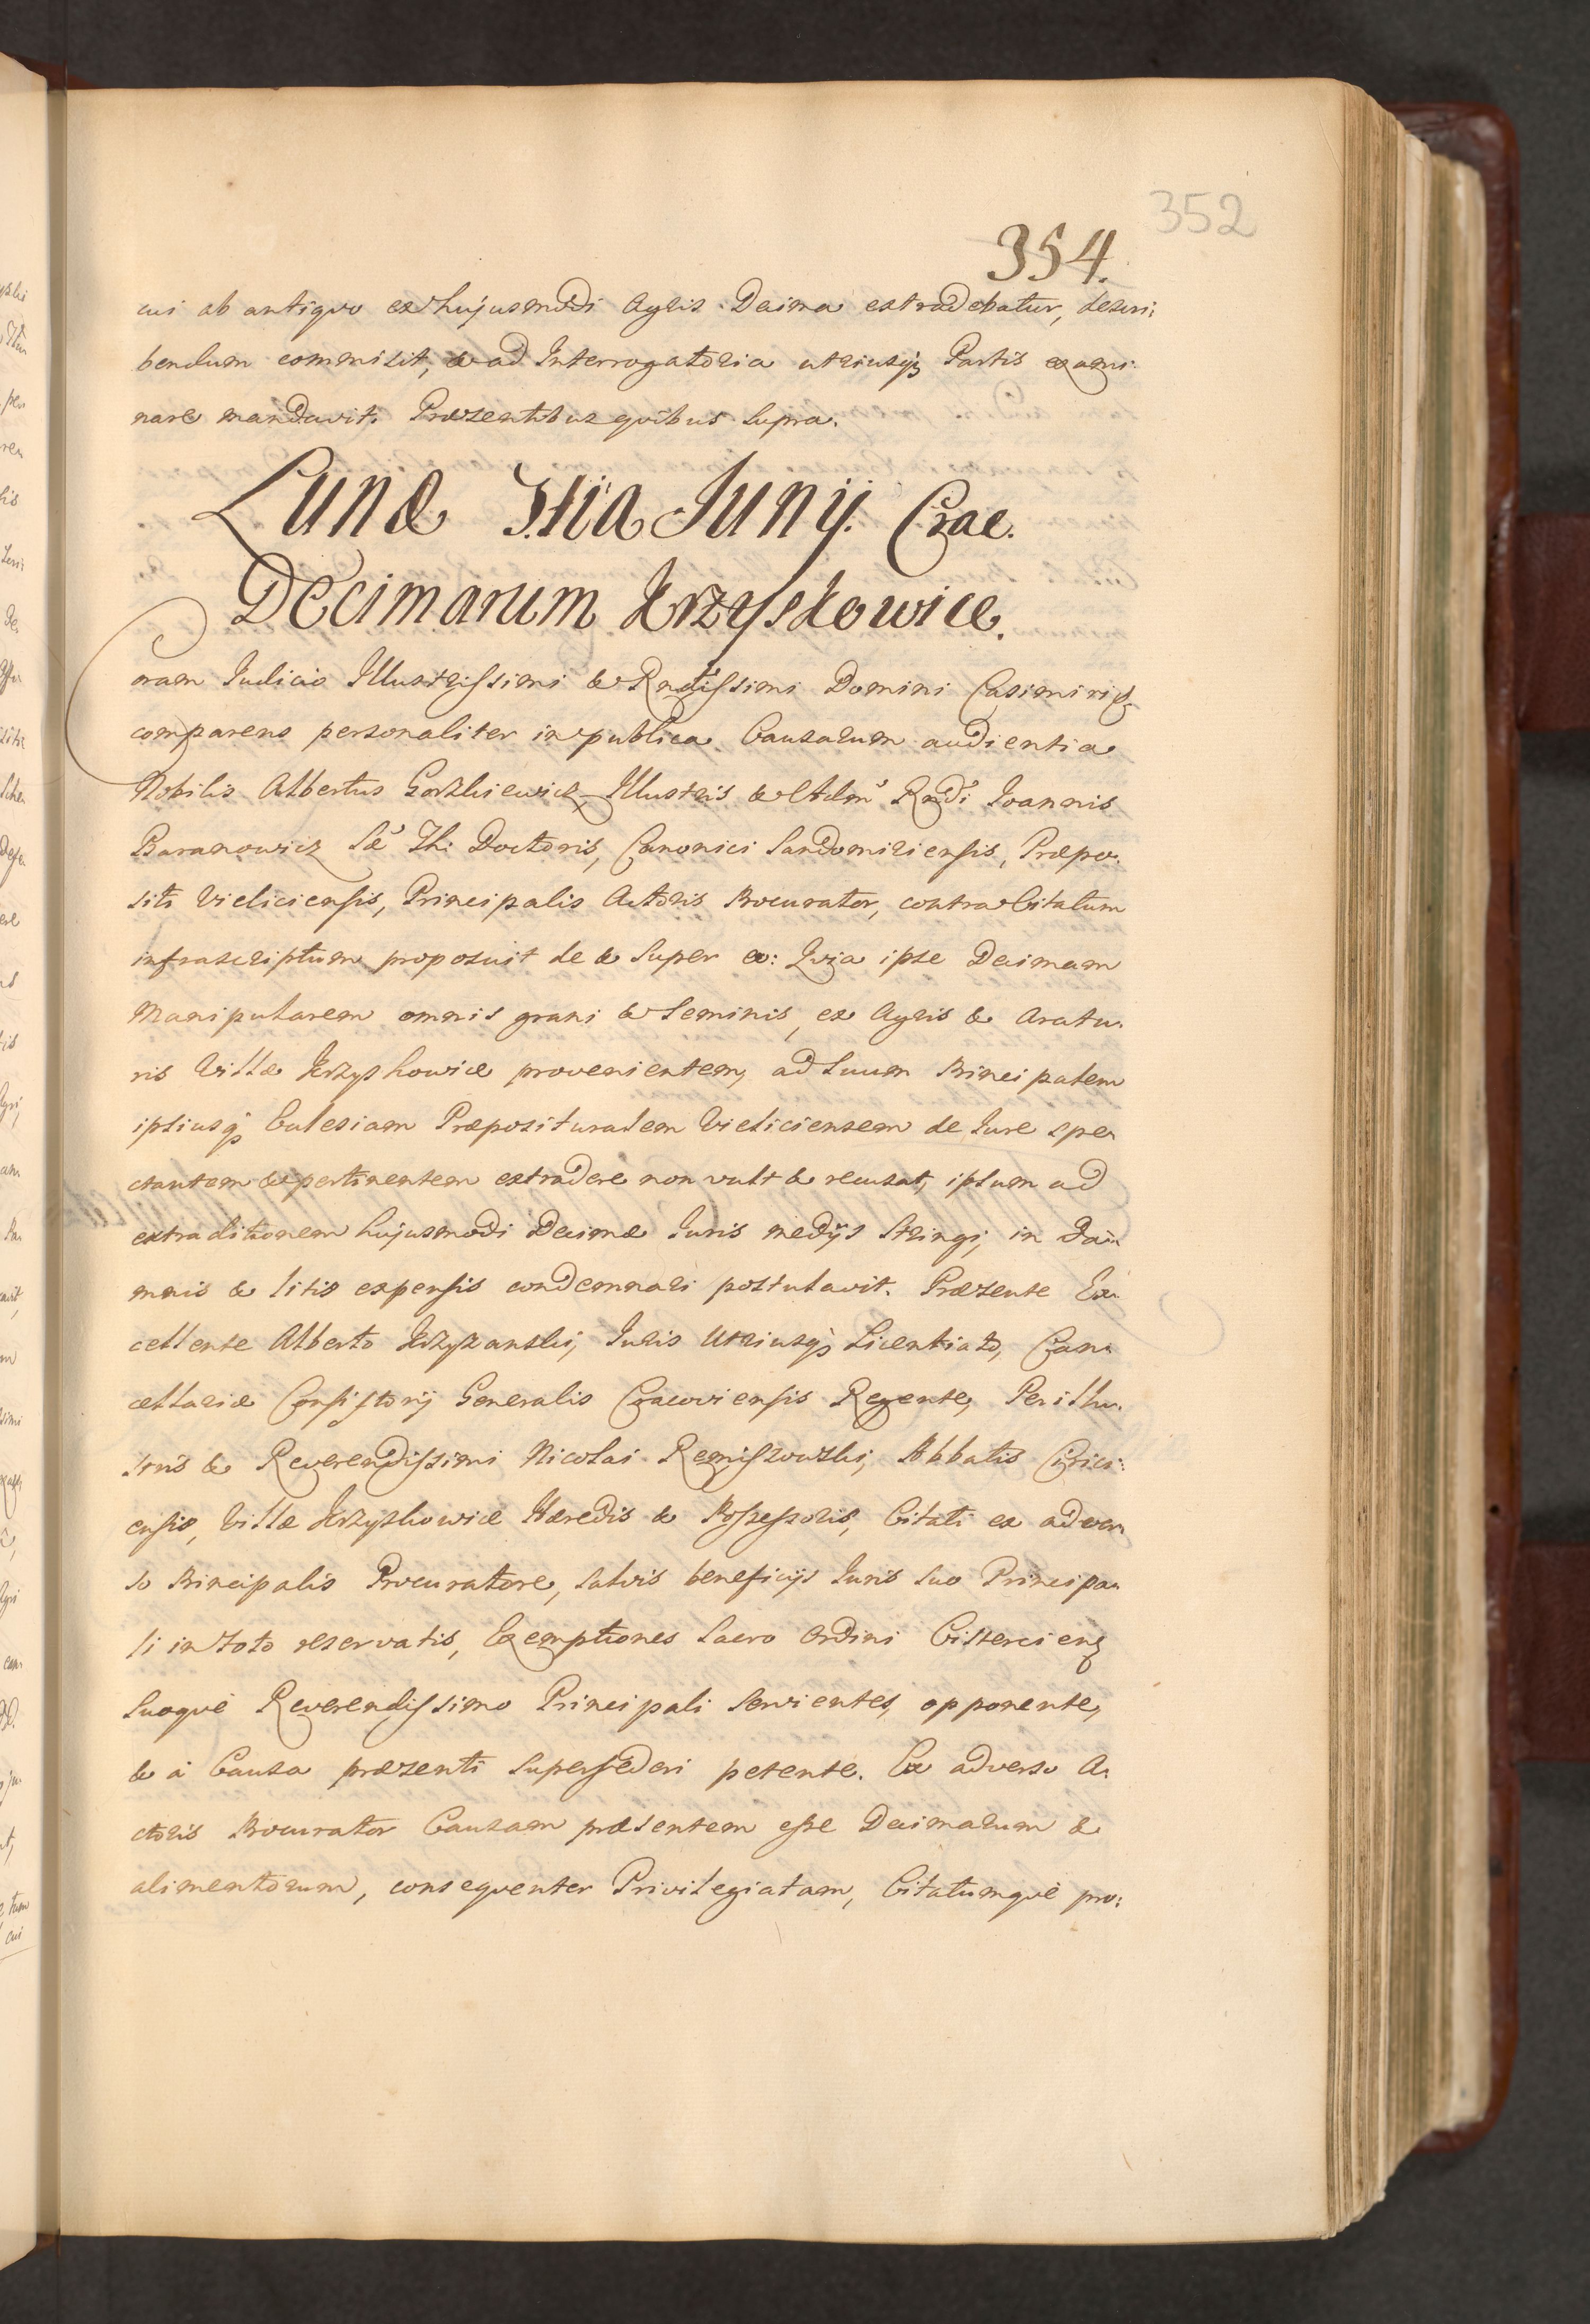 352
354.
cui ab antiquo ex hujusmodi Agris Decima extradebatur, descri:
bendum commisit, & ad Interrogatoria utriusq; Partis exami:
nare mandavit. Præsentibus quibus supra.
Lunæ 3tia Junij. Crac.
Decimarum Krzyszkowice.
oram Iudicio Illustrissimi & Rndissimi Domini Casimiri &
comparens personaliter in publica Causarum audientia
Nobilis Albertus Gorzkiewicz, Illustris & Adm Rndi Ioannis
Baranowicz Sæ Th: Doctoris, Canonici Sandomiriensis, Præpo:
siti Vieliciensis, Principalis Actoris Procurator, contra Citatum
infrascriptum proposuit de & super eo: Quia ipse Decimam
Manipularem omnis grani & seminis, ex Agris & Aratu:
ris Villæ Krzyszkowice provenientem, ad suum Principalem
ipsiusq; Ecclesiam Præposituralem Vieliciensem de Iure spe:
ctantem & pertinentem extradere non vult & recusat, ipsum ad
extraditionem hujusmodi Decimæ Iuris medijs stringi, in dam
mnis & litis expensis condemnari postulavit. Præsente Ex:
cellente Alberto Krzyzanski, Iuris Utriusq; Licentiato, Can:
cellariæ Consistorij Generalis Cracoviensis Regente, Perillu:
stris & Reverendissimi Nicolai Remiszowski, Abbatis Cirici:
ensis, Villæ Krzyszkowice Hæredis & Possessoris, Citati ex adver:
so Principalis Procuratore, salvis beneficijs Iuris suo Principa:
li in toto reservatis, Exemptiones Sacro Ordini Cisterciens
suoque Reverendissimo Principali servientes, opponente,
& à Causa præsenti supersederi petente. Ex adverso A:
ctoris Procurator Causam præsentem esse Decimarum &
alimentorum, consequenter Privilegiatam, Citatumque pro: